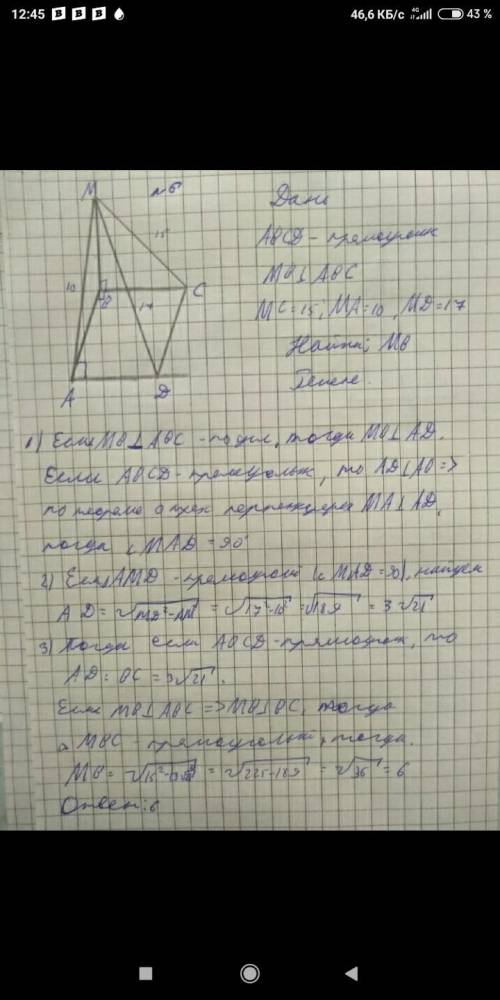 12:45 B B B 46,6 КБ/с 4G 43 %
M №6
15
10 B 17 C
A D
Дано
ABCD - прямоугольник
MB⊥ABC
MC=15; MA=10, MD=17
Найти: MB
Решение.
1) Если MB⊥ABC - по усл, тогда MB⊥AD.
Если ABCD - прямоугольник, то AD⊥AB =>
по теореме о трех перпендикулярах MA⊥AD,
тогда ∠MAD = 90°
2) Если AMD - прямоугольный (∠MAD=90), найдем
AD = √MD²-AM² = √17²-10² = √189 = 3√21
3) Тогда если ABCD - прямоугольник, то
AD = BC = 3√21.
Если MB⊥ABC => MB⊥BC, тогда
△MBC - прямоугольный, тогда.
MB = = √225-189 = √36 = 6
Ответ: 6